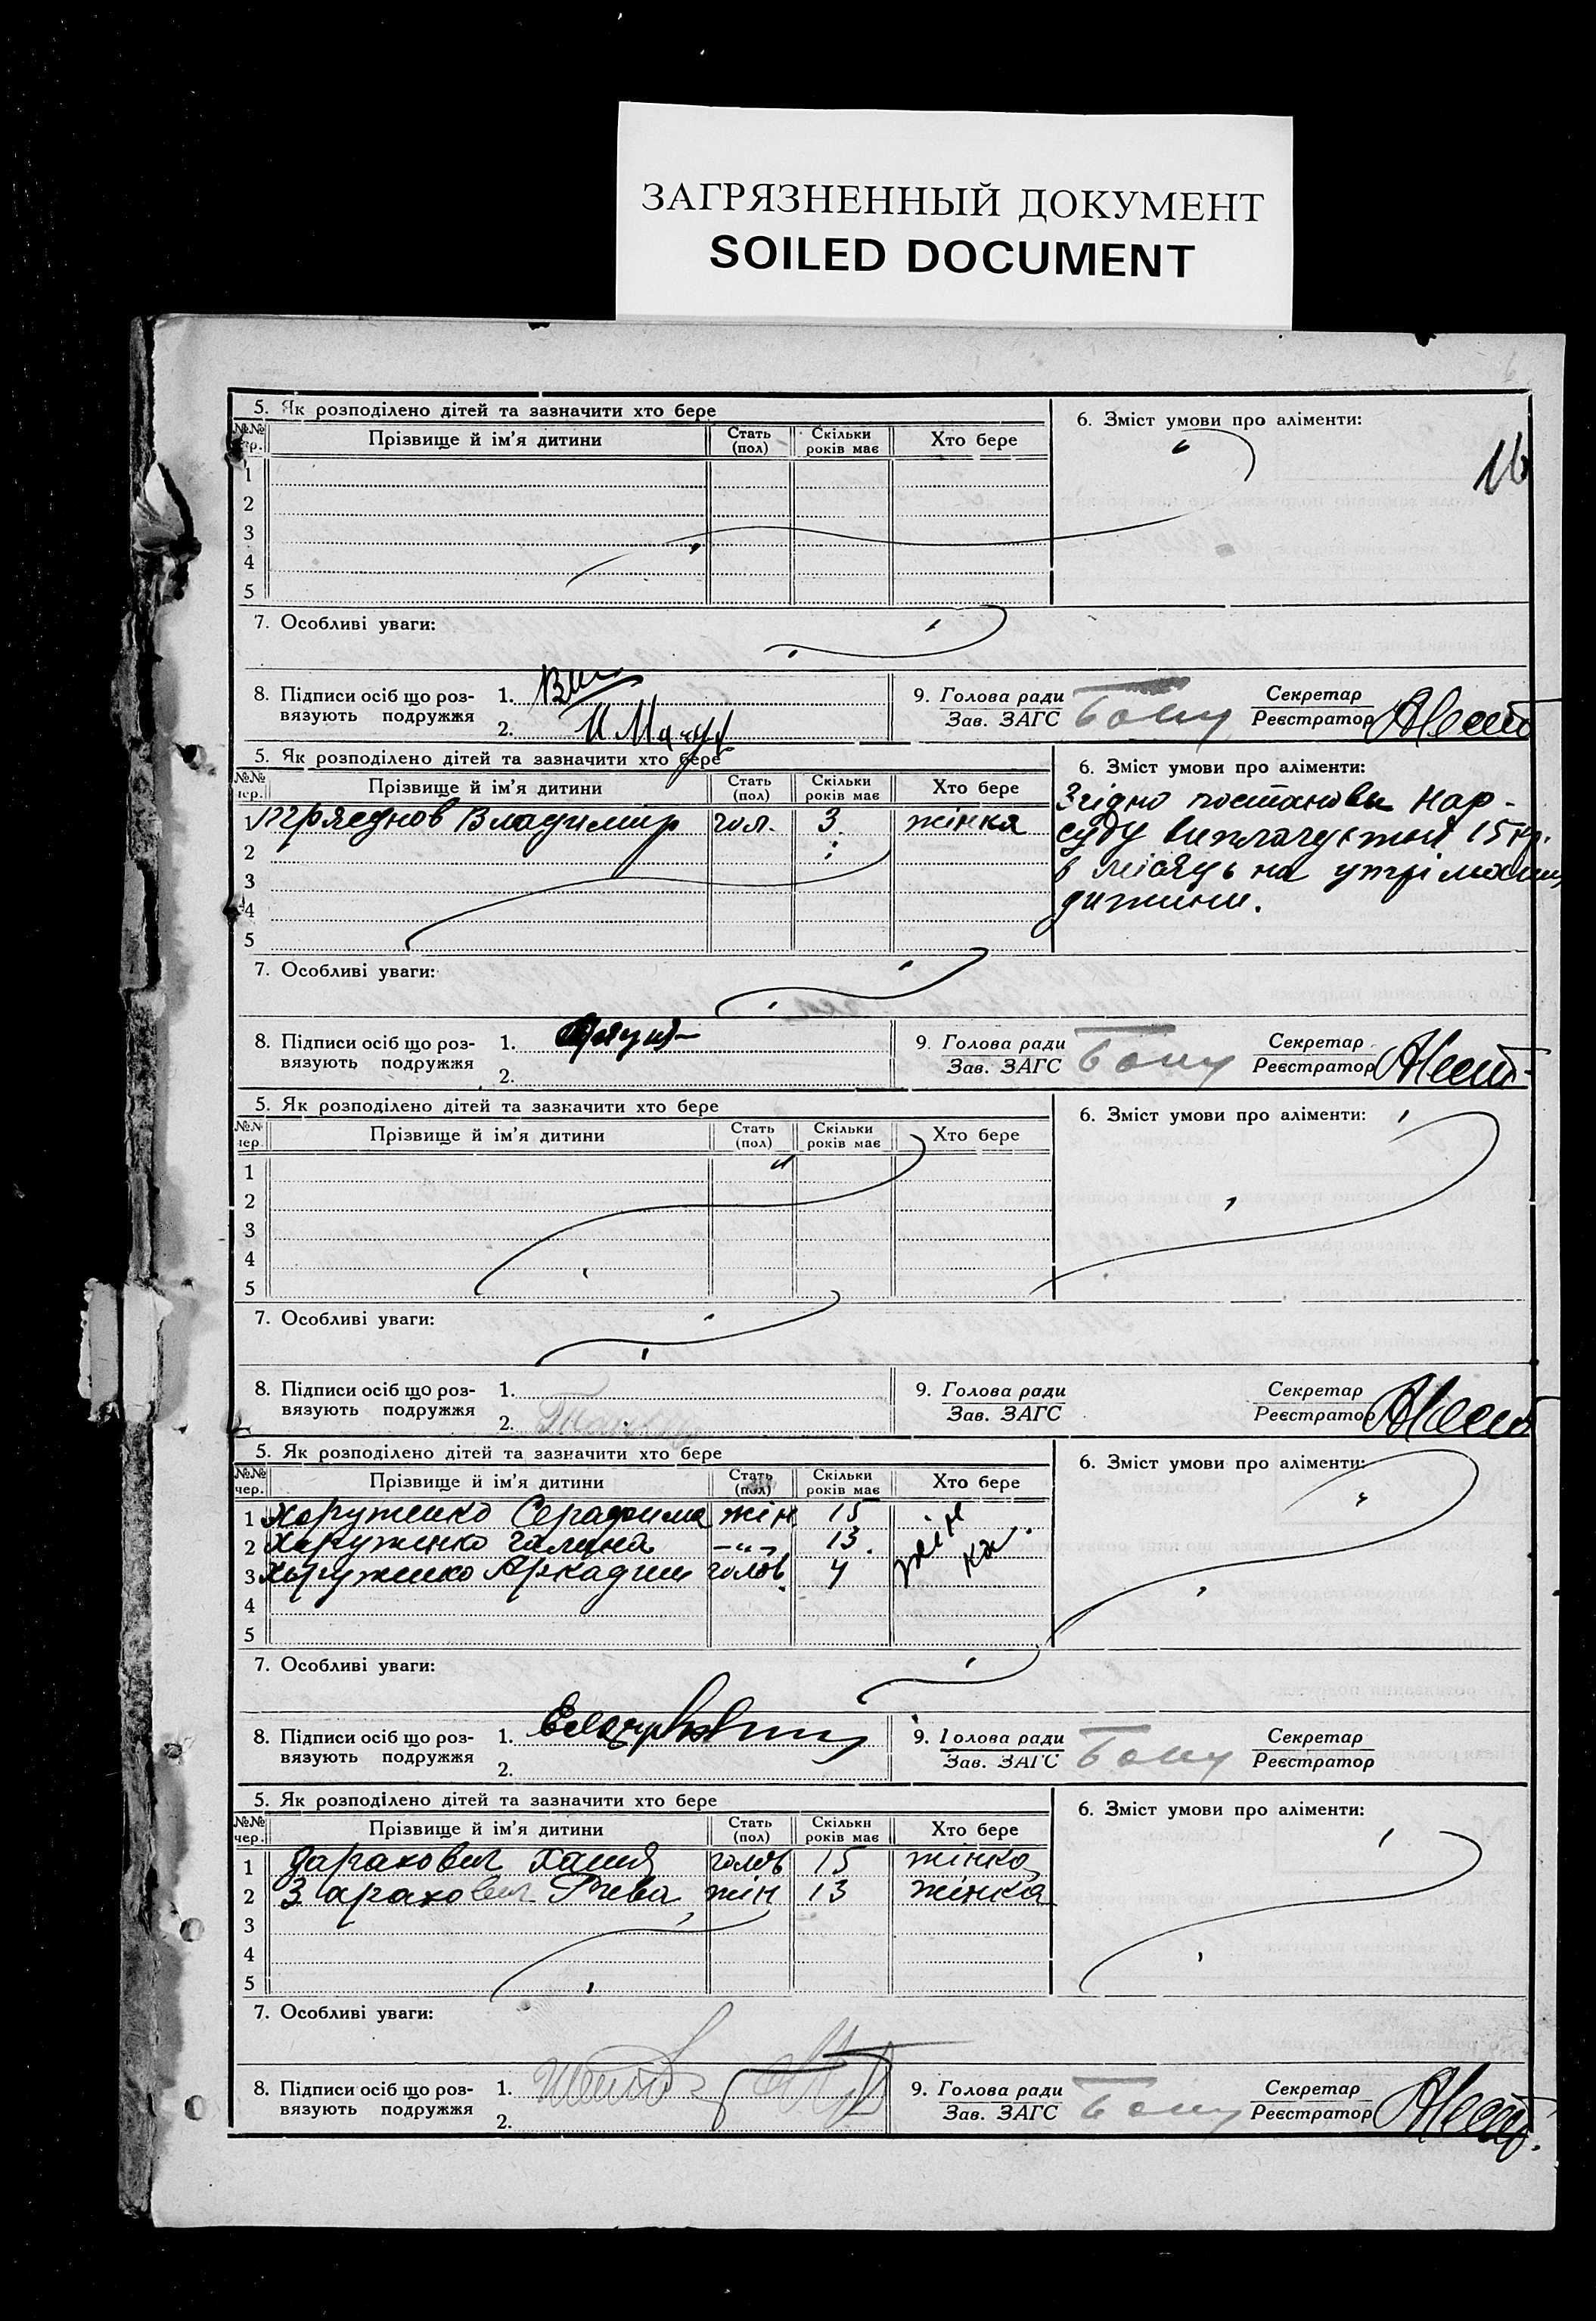 ЗАГРЯЗНЕННЫЙ ДОКУМЕНТ
SOILED DOCUMENT
5. Як розподілено дітей та зазначити хто бере
6. Зміст умови про аліменти:
№№ Прізвище й ім'я дитини Стать (пол) Скільки років має Хто бере
16
1
2
3
4
5
7. Особливі уваги:
8. Підписи осіб що роз- 1.
вязують подружжя 2.
9. Голова ради Секретар
Зав. ЗАГС Реєстратор
5. Як розподілено дітей та зазначити хто бере
6. Зміст умови про аліменти:
№№ Прізвище й ім'я дитини Стать (пол) Скільки років має Хто бере
1 Владимир гол. 3 жінка
2
3
4
5
Згідно постанови Нар-
суду виплачується 15 кр.
в місяць на
дитини.
7. Особливі уваги:
8. Підписи осіб що роз- 1.
вязують подружжя 2.
9. Голова ради Секретар
Зав. ЗАГС Реєстратор
5. Як розподілено дітей та зазначити хто бере
6. Зміст умови про аліменти:
Прізвище й ім'я дитини Стать (пол) Скільки років має Хто бере
1
2
3
4
5
7. Особливі уваги:
8. Підписи осіб що роз- 1.
вязують подружжя 2.
9. Голова ради Секретар
Зав. ЗАГС Реєстратор
5. Як розподілено дітей та зазначити хто бере
6. Зміст умови про аліменти:
№№ чер. Прізвище й ім'я дитини Стать (пол) Скільки років має Хто бере
1 Хоруженко Серафима жін 15 жін
2 Хоруженко Галина -"- 13 ка
3 Хоруженко Аркадий голов 4
4
5
7. Особливі уваги:
8. Підписи осіб що роз- 1.
вязують подружжя 2.
9. Голова ради Секретар
Зав. ЗАГС Реєстратор
5. Як розподілено дітей та зазначити хто бере
6. Зміст умови про аліменти:
№№ чер. Прізвище й ім'я дитини Стать (пол) Скільки років має Хто бере
1 голов 15 жінка
2 жін 13 жінка
3
4
5
7. Особливі уваги:
8. Підписи осіб що роз- 1.
вязують подружжя 2.
9. Голова ради Секретар
Зав. ЗАГС Реєстратор